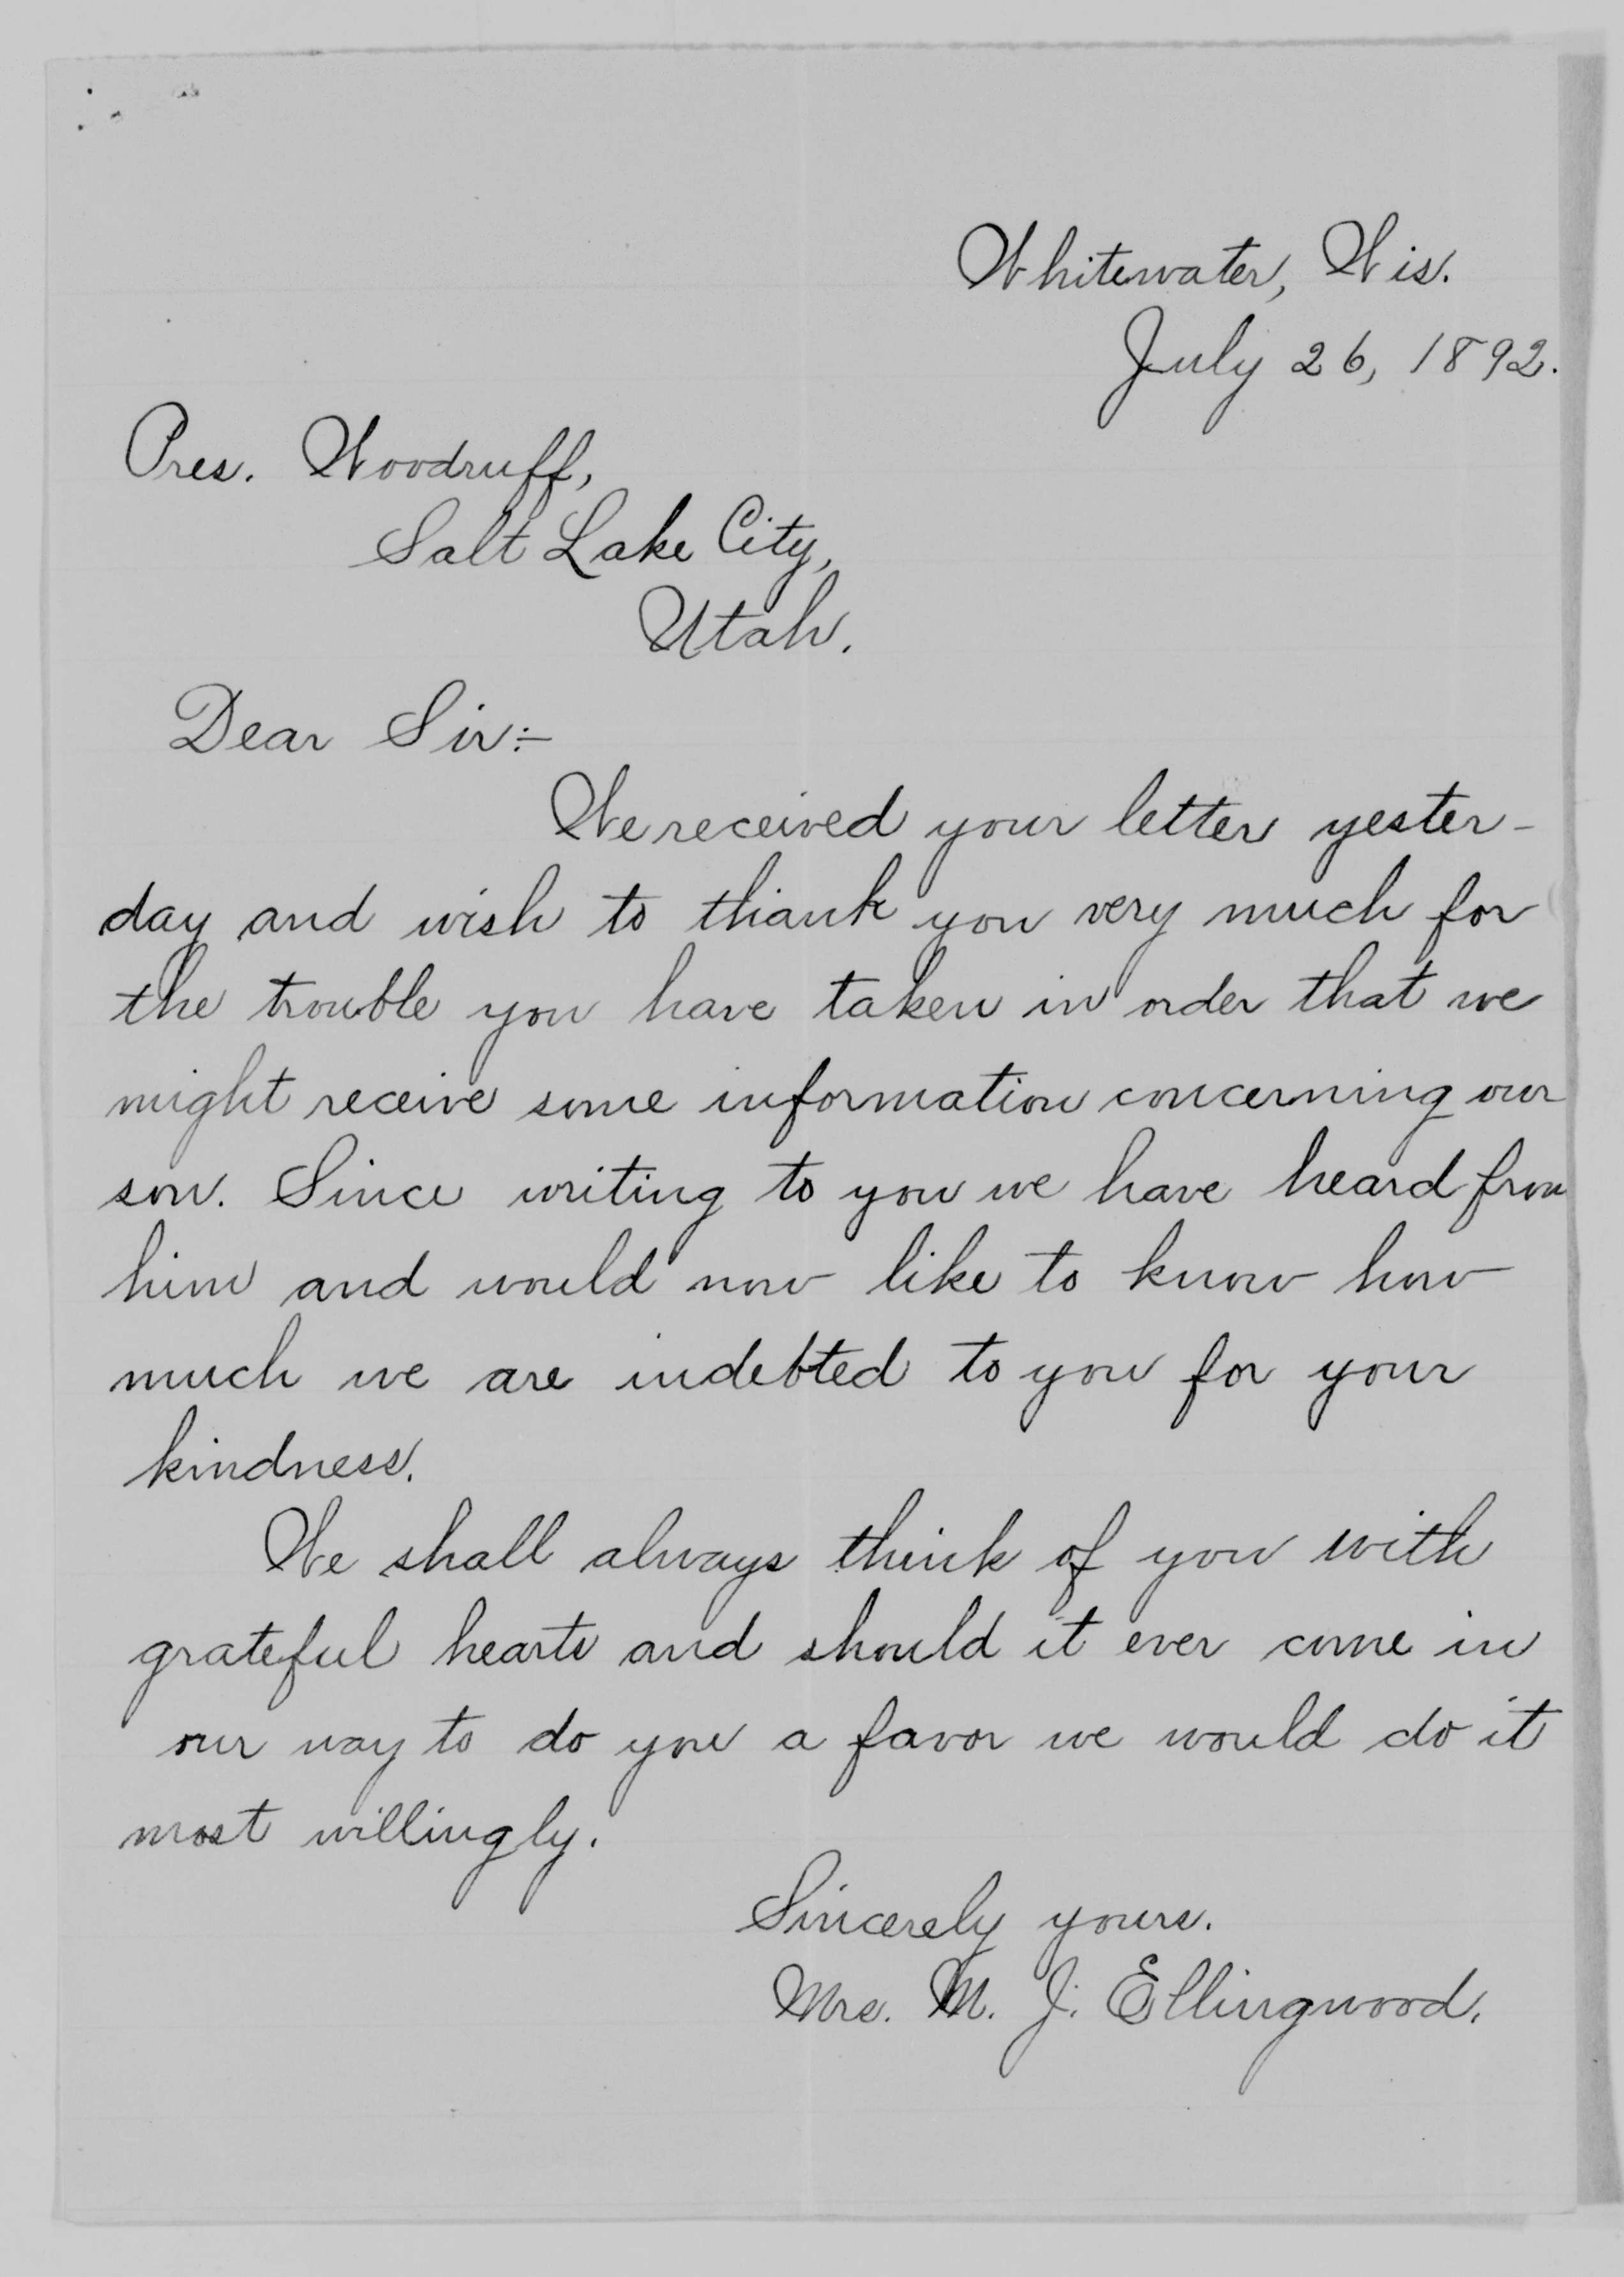 Whitewater, Wis.
July 26, 1892.
Pres. Woodruff,
Salt Lake City,
Utah.
Dear Sir:-
We received your letter yester-
day and wish to thank you very much for
the trouble you have taken in order that we
might receive some information concerning our
son. Since writing to you we have heard from
him and would now like to know how
much we are indebted to you for your
kindness.
We shall always think of you with
grateful hearts and should it ever come in
our way to do you a favor we would do it
most willingly.
Sincerely yours.
Mrs. M. J. Ellingwood.